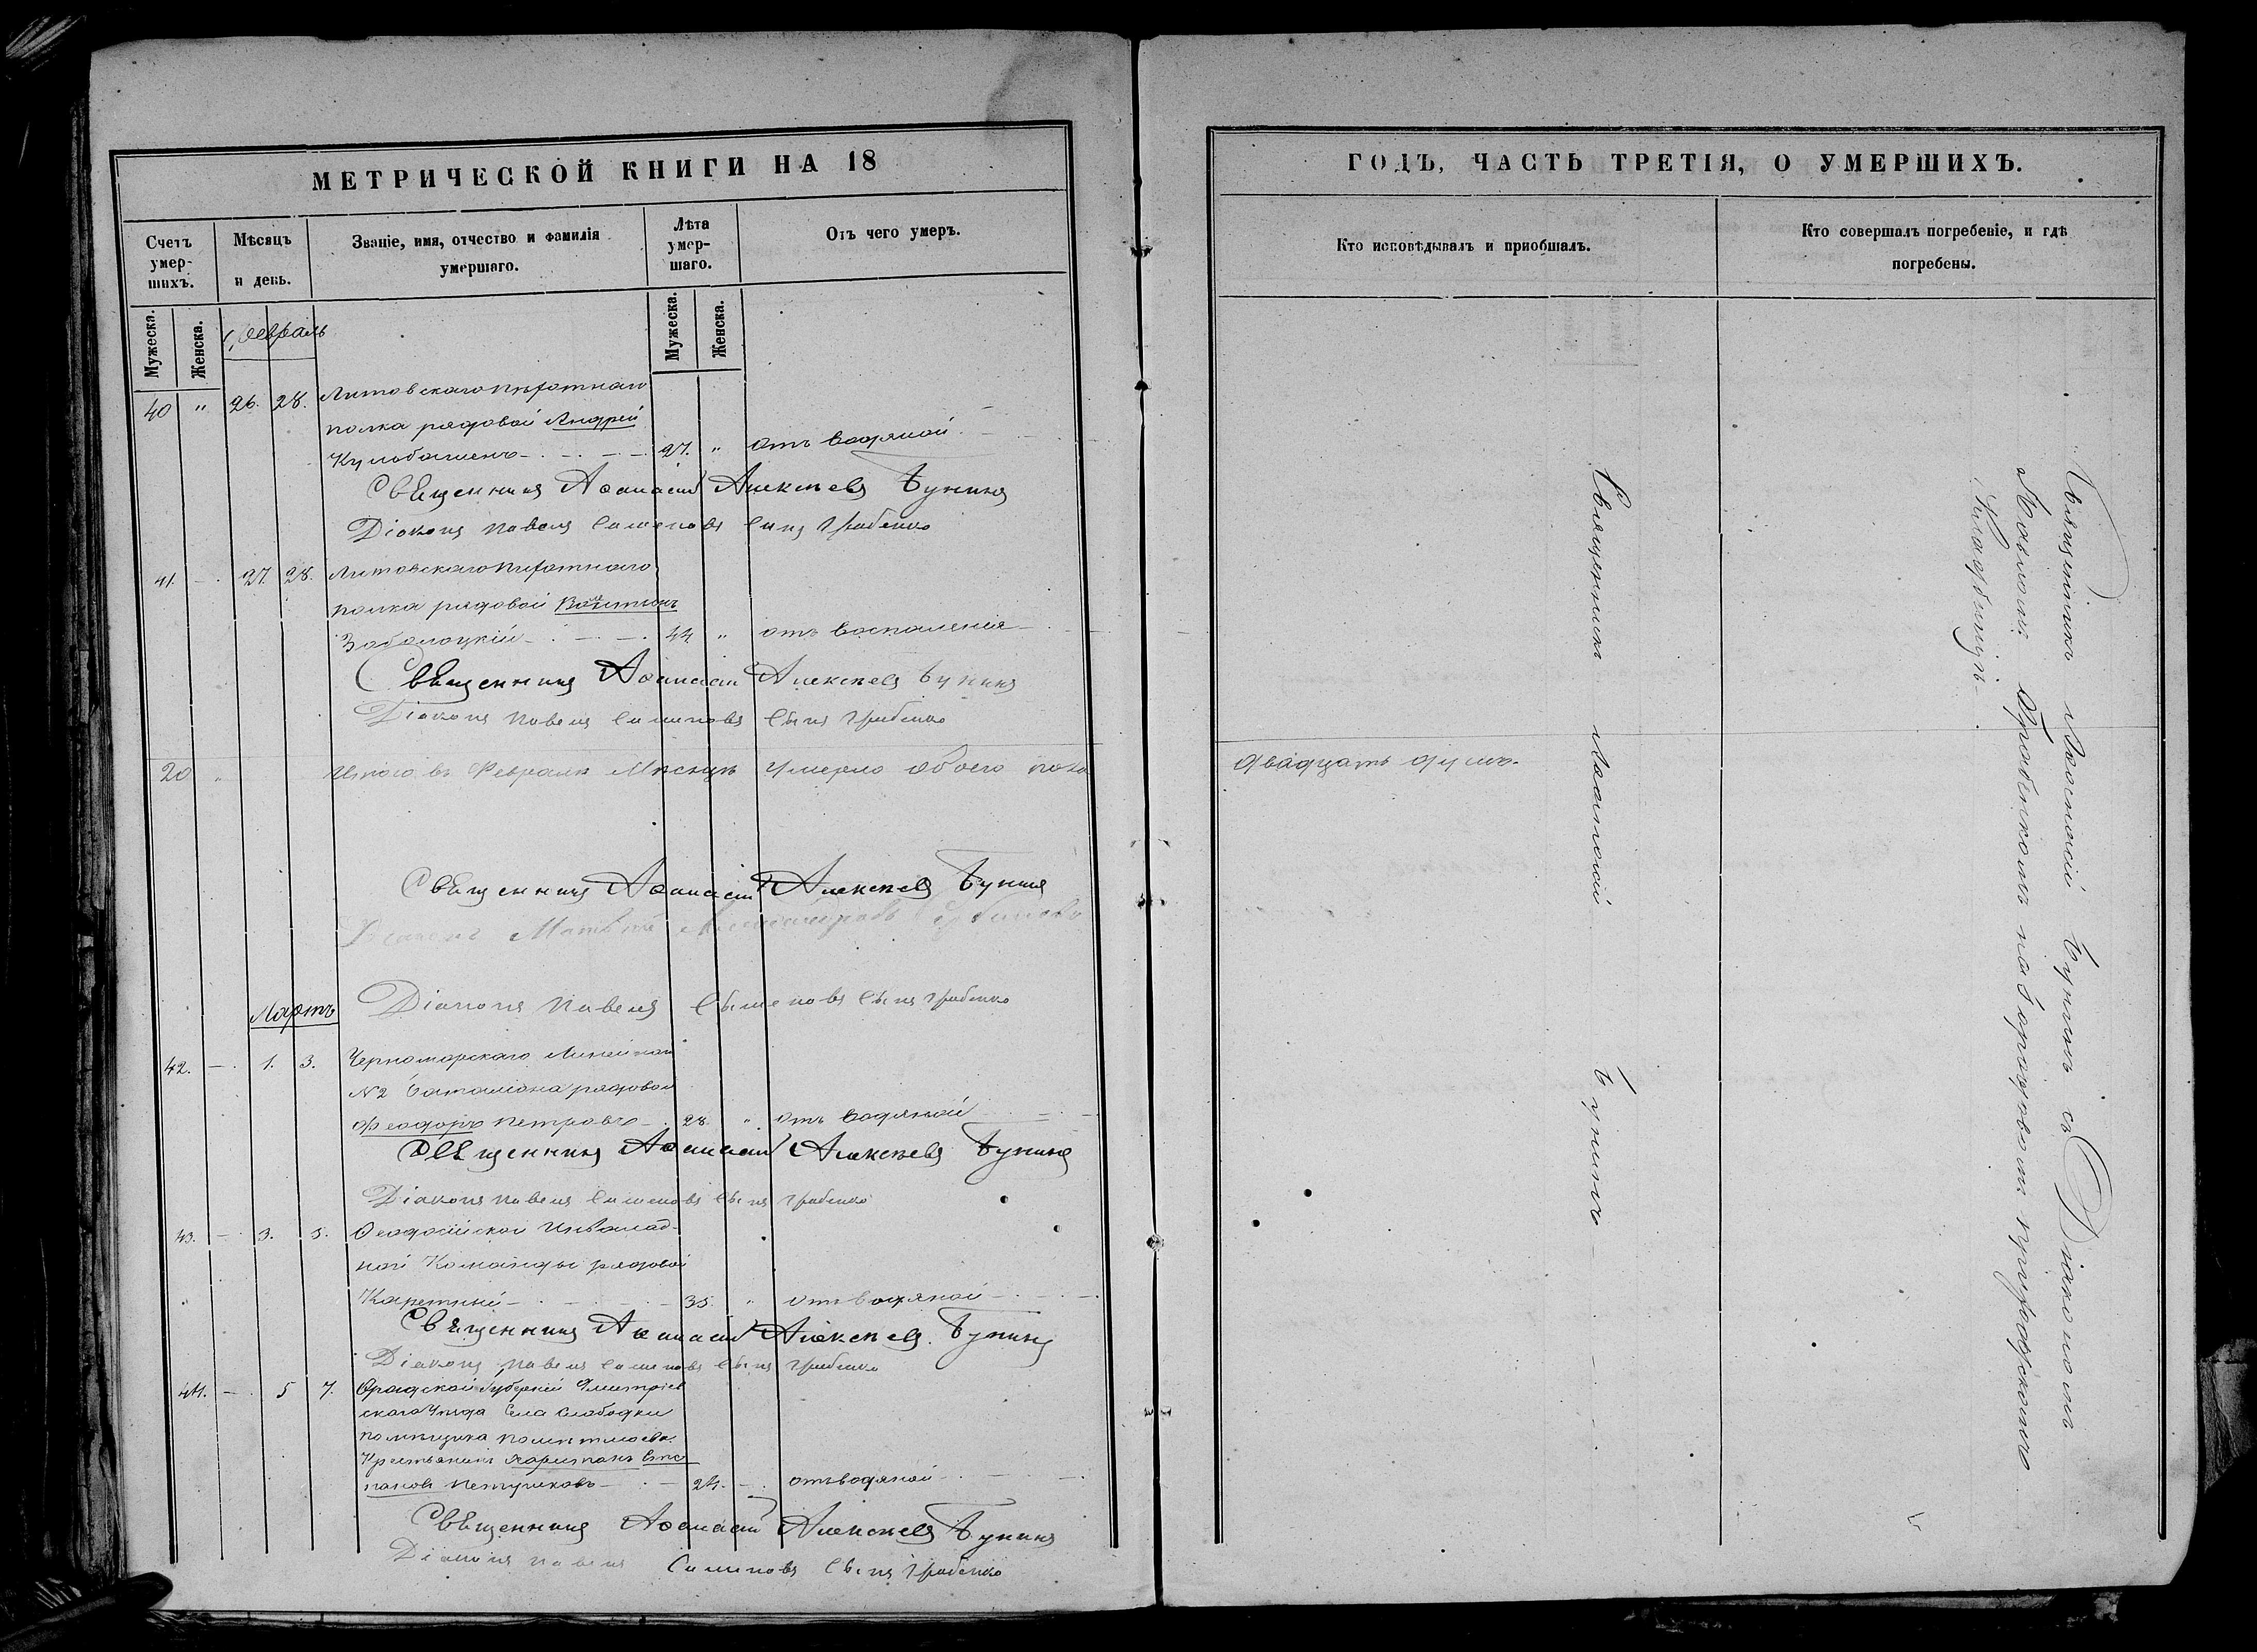 МЕТРИЧЕСКОЙ КНИГИ НА 18
Счетъ умер-шихъ.
Мѣсяцъ и день.
Званіе, имя, отчество и фамилія умершаго.
Лѣта умер-шаго.
Отъ чего умеръ.
Мужеска.
Женска.
Февраль
Мужеска.
Женска.
40 " 26. 28. Литовскаго пѣхотнаго
полка рядовой Андрей
27. " отъ водяной
Священникъ Аѳанасій Алексѣевъ Бунинъ
Діаконъ Павелъ Симеоновъ сынъ Грабенко
41. 27. 28. Литовскаго пѣхотнаго
полка рядовой
Заболоцкій 44 " отъ воспаленія
Священникъ Аѳанасій Алексѣевъ Бунинъ
Діаконъ Павелъ Симеоновъ сынъ Грабенко
20 " Итого въ Февралѣ Мѣсяцѣ умерло обоего пола
Священникъ Аѳанасій Алексѣевъ Бунинъ
Діаконъ
Діаконъ Павелъ Симеоновъ сынъ Грабенко
Мартъ
42. 1. 3. Черноморскаго Линейнаго
№2 баталіона рядовой
Феодоръ Петровъ 28. " отъ водяной
Священникъ Аѳанасій Алексѣевъ Бунинъ
Діаконъ Павелъ Симеоновъ сынъ Грабенко
43. 3. 5. Ѳеодосійской Инвалид-
ной Команды рядовой
35. " отъ водяной
Священникъ Аѳанасій Алексѣевъ Бунинъ
Діаконъ Павелъ Симеоновъ сынъ Грабенко
44. 5 7. губерніи Дмитріев
скаго уѣзда села Слободки
помѣщика
Крестьянинъ Харитонъ Сте
пановъ Петушковъ 24. отъ водяной
Священникъ Аѳанасій Алексѣевъ Бунинъ
Діаконъ Павелъ Симеоновъ сынъ Грабенко
ГОДЪ, ЧАСТЬ ТРЕТІЯ, О УМЕРШИХЪ.
Кто исповѣдывалъ и приобщалъ.
Кто совершалъ погребеніе, и гдѣ погребены.
двадцать душъ.
Священникъ Бунинъ
Священникъ Бунинъ съ Діакономъ
Грабенкомъ на приходскомъ
Кладбищѣ